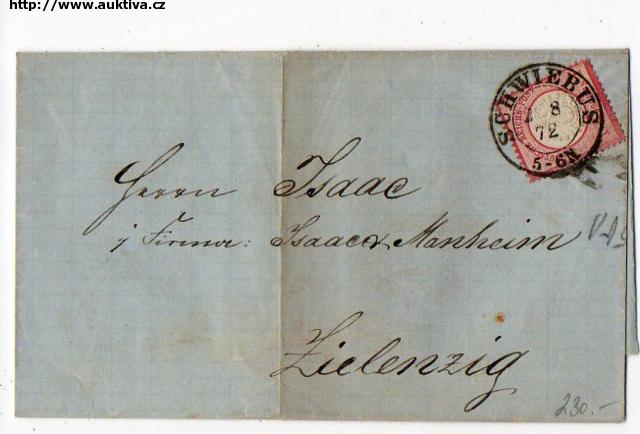 http://www.auktiva.cz
SCHWIEBUS
8
72
5-6N.
Herrn Isaac
j Firma: Isaac & Manheim
Zielenzig
230.-